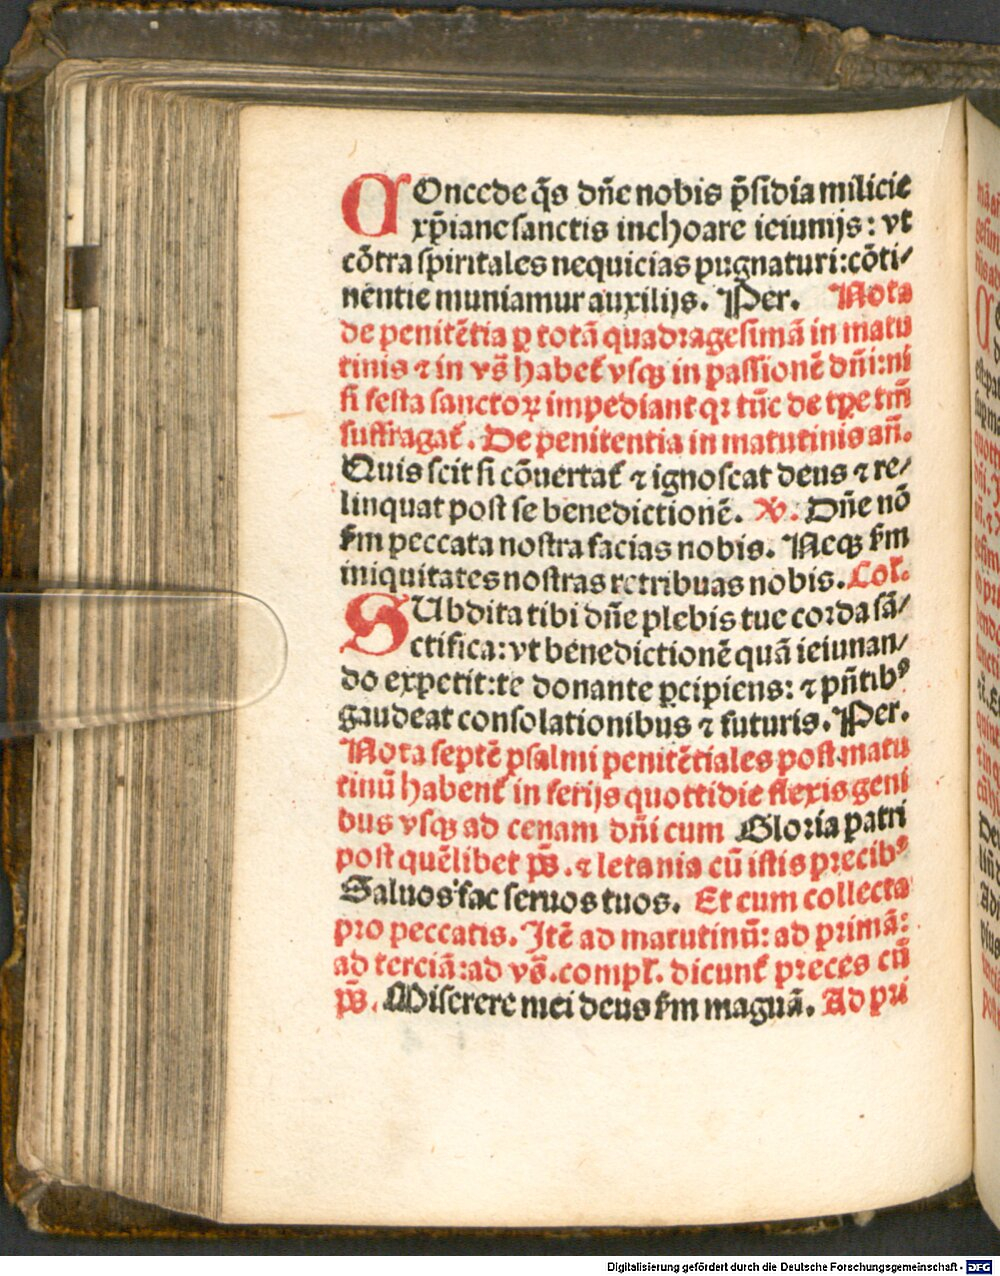 COncede q̄s dn̄e nobis p̄sidia milicie
xp̄iane sanctis inchoare ieiunijs: vt
cōtra spiritales nequicias pugnaturi: cōti/
nentie muniamur auxilijs. Per. Nota
de penitētia ꝑ totā quadragesimā in matu
tinis ⁊ in vs̄ habet᷑ vsqꝫ in passionē dn̄i: ni
si festa sanctoꝝ impediant qꝛ tūc de tꝑe tm̄
suffragat᷑. De penitentia in matutinis an̄.
Quis scit si cōuertat᷑ ⁊ ignoscat deus ⁊ re/
linquat post se benedictionē. V. Dn̄e nō
ẜm peccata nostra facias nobis. Necqꝫ ẜm
iniquitates nostras retribuas nobis. Col᷑.
SUbdita tibi dn̄e plebis tue corda sā/
ctifica: vt benedictionē quā ieiunan/
do expetit: te donante ꝑcipiens: ⁊ pn̄tibꝰ
gaudeat consolationibus ⁊ futuris. Per.
Nota septē psalmi penitētiales post matu
tinū habent᷑ in ferijs quottidie flexis geni
bus vsqꝫ ad cenam dn̄i cum Gloria patri
post quēlibet ps̄. ⁊ letania cū istis precibꝰ
Saluos fac seruos tuos. Et cum collecta
pro peccatis. Itē ad matutinū: ad primā:
ad terciā: ad vs̄. compl᷑. dicunt᷑ preces cū
ps̄. Miserere mei deus ẜm magnā. Ad pri
Digitalisierung gefördert durch die Deutsche Forschungsgemeinschaft - DFG